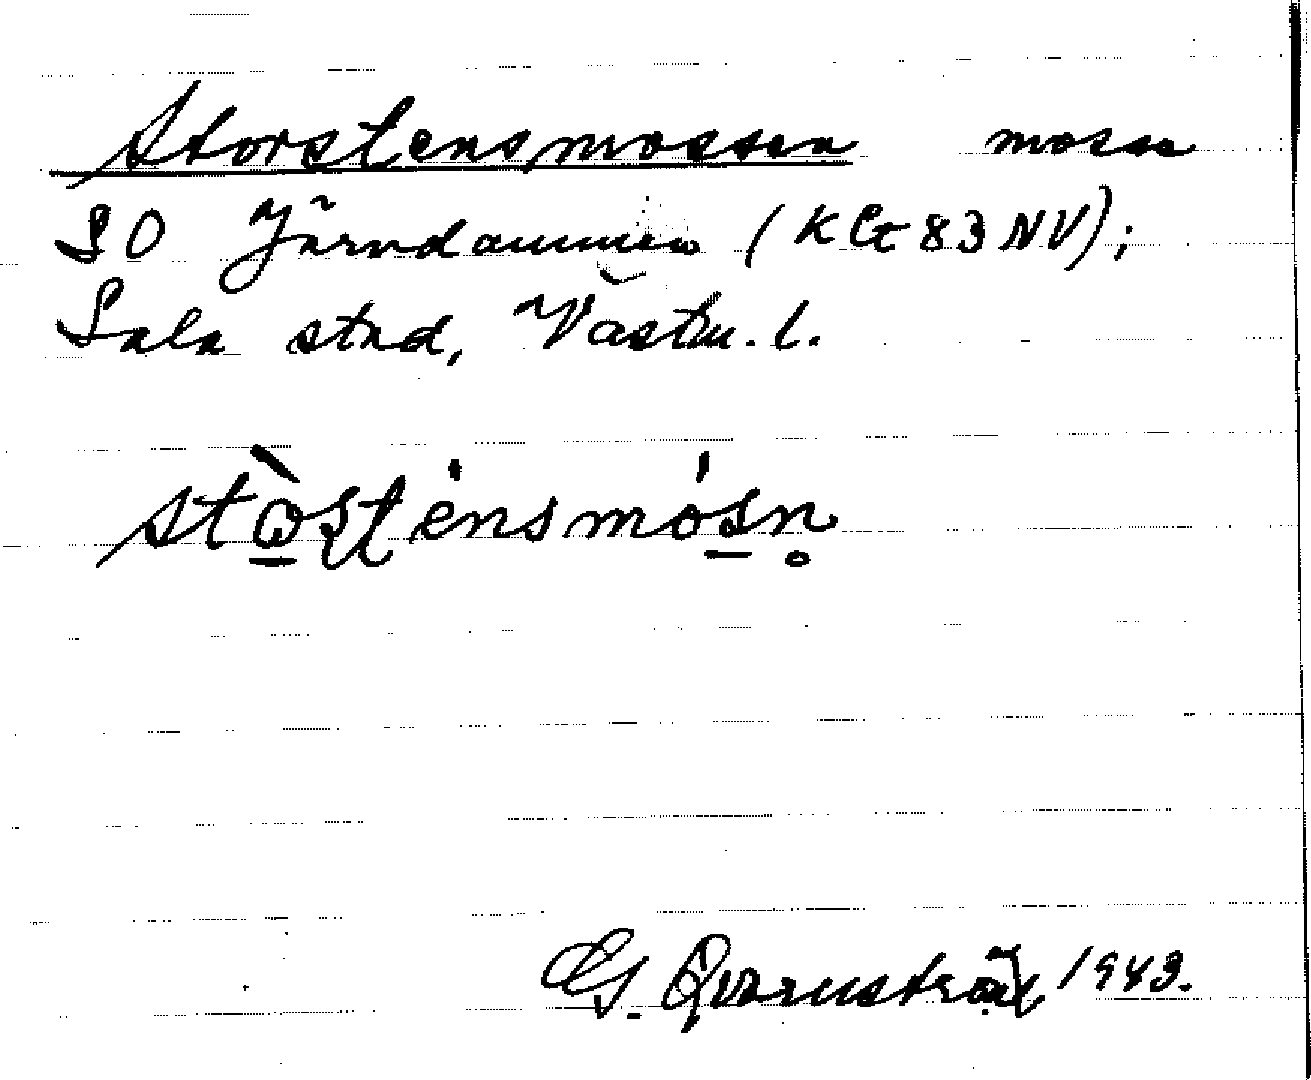 Storstensmossen mosse
SO Järndammen (KBt 83 NV);
Sala stad, Västm. l.
stòʂʈénsmósn̥
G. Qvarnström 1943.